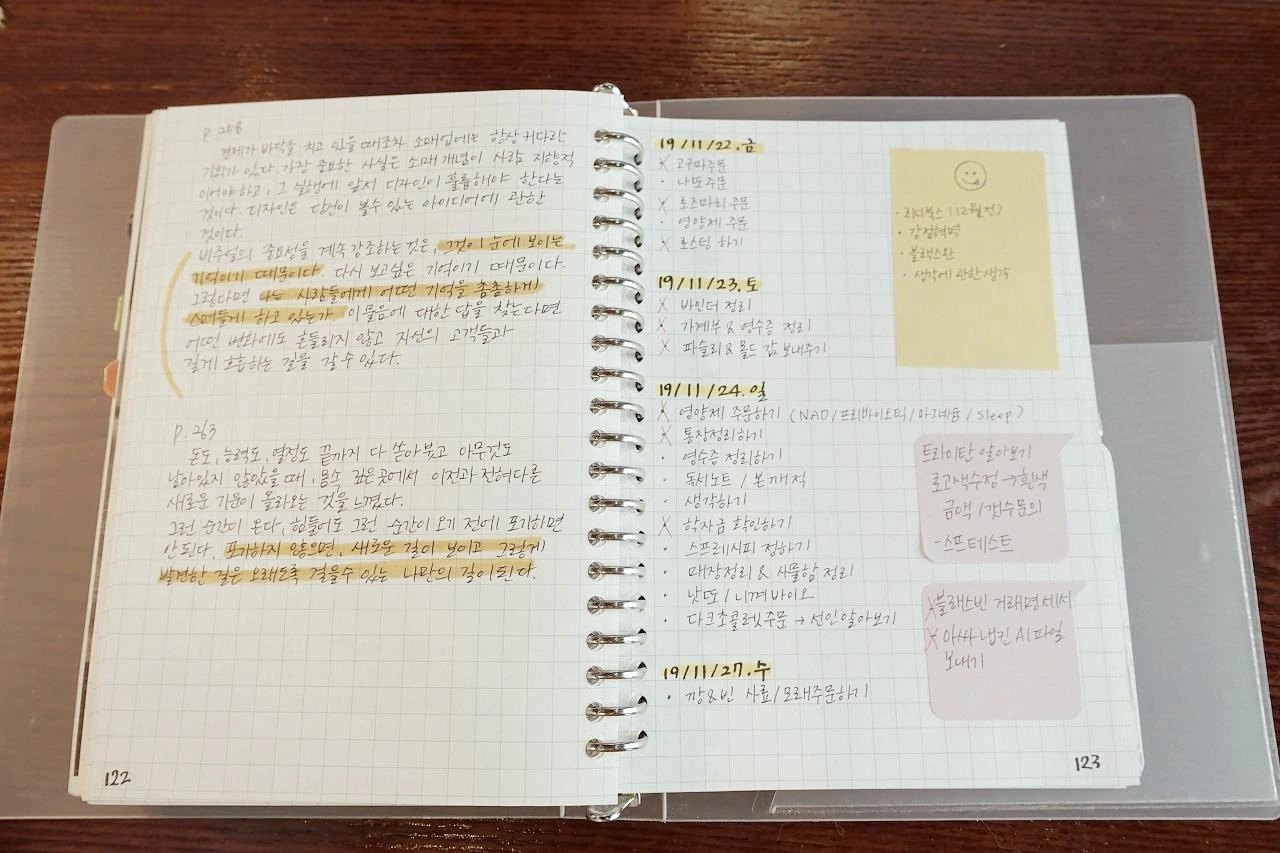 p. 258
경제가 바닥을 치고 있을 때조차 소매업에는 항상 커다란
기회가 있다. 가장 중요한 사실은 소매 개념이 사람 지향적
이어야 하고, 그 실행에 앞서 디자인이 훌륭해야 한다는
것이다. 디자인은 당신이 볼수 있는 아이디어에 관한
것이다.
비주얼의 중요성을 계속 강조하는 것은, 그것이 눈에 보이는
기억이기 때문이다. 다시 보고싶은 기억이기 때문이다.
그렇다면 나는 사람들에게 어떤 기억을 촘촘하게
스며들게 하고 있는가 이 물음에 대한 답을 찾는다면
어떤 변화에도 흔들리지 않고 자신의 고객들과
길게 호흡하는 길을 갈 수 있다.
p. 263
돈도, 능력도, 열정도 끝까지 다 쏟아붓고 아무것도
남아있지 않았을 때, 몸속 깊은 곳에서 이전과 전혀 다른
새로운 기운이 올라오는 것을 느꼈다.
그런 순간이 온다, 힘들어도 그런 순간이 오기 전에 포기하면
안 된다. 포기하지 않으면, 새로운 길이 보이고 그렇게
발견한 길은 오래도록 걸을수 있는 나만의 길이 된다.
122
19/11/22.금
고구마주문
나또주문
로즈마리 주문
영양제 주문
로스팅 하기
19/11/23.토
바인더 정리
가계부 & 영수증 정리
파슬리 & 몰드 값 보내주기
19/11/24.일
영양제 주문하기 (NAD/프리바이오틱/마그네슘/sleep)
통장정리하기
영수증 정리하기
독서노트 / 본깨적
생각하기
학자금 확인하기
스프레시피 정하기
매장정리 & 사물함 정리
낫또 / 니껴바이오
다크초콜렛주문 → 선인알아보기
19/11/27.수
깡&빈 사료/모래주문하기
리디북스 (12월전)
강점혁명
블랙스완
생각에 관한 생각
트라이탄 알아보기
로고색수정 → 흰색
금액 / 갯수문의
- 스프테스트
블래스빈 거래명세서
아싸 냅킨 AI파일
보내기
123